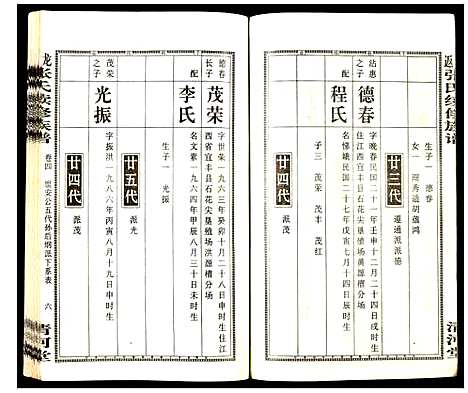 张氏续修族谱
清河堂
生子一 德春
女一 商秀适胡蕴鸿
廿三代 遵通派派德
沾惠之子
德春
字晚春民国二十一年壬申十二月二十四日戌时生
住江西省宜丰县石花尖垦殖场黄源檀分场
配
程氏
名悌娥民国二十七年戊寅七月十四日辰时生
子三 茂荣 茂丰 茂红
廿四代 派茂
德春长子
茂荣
字世荣一九六三年癸卯十月二十八日申时生住江
西省宜丰县石花尖垦殖场洪源檀分场
配
李氏
名文素一九六四年甲辰八月三十日未时生
生子一 光振
廿五代 派光
茂荣之子
光振
字振洪一九八六年八月十九日申时生
廿四代 派茂
张氏续修族谱
卷四
崇安公五代孙后炯派下系表
六
清河堂